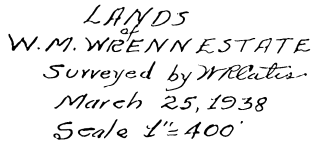 LANDS
of
W. M. WRENN ESTATE
Surveyed by W R Cates
March 25, 1938
Scale 1"= 400'